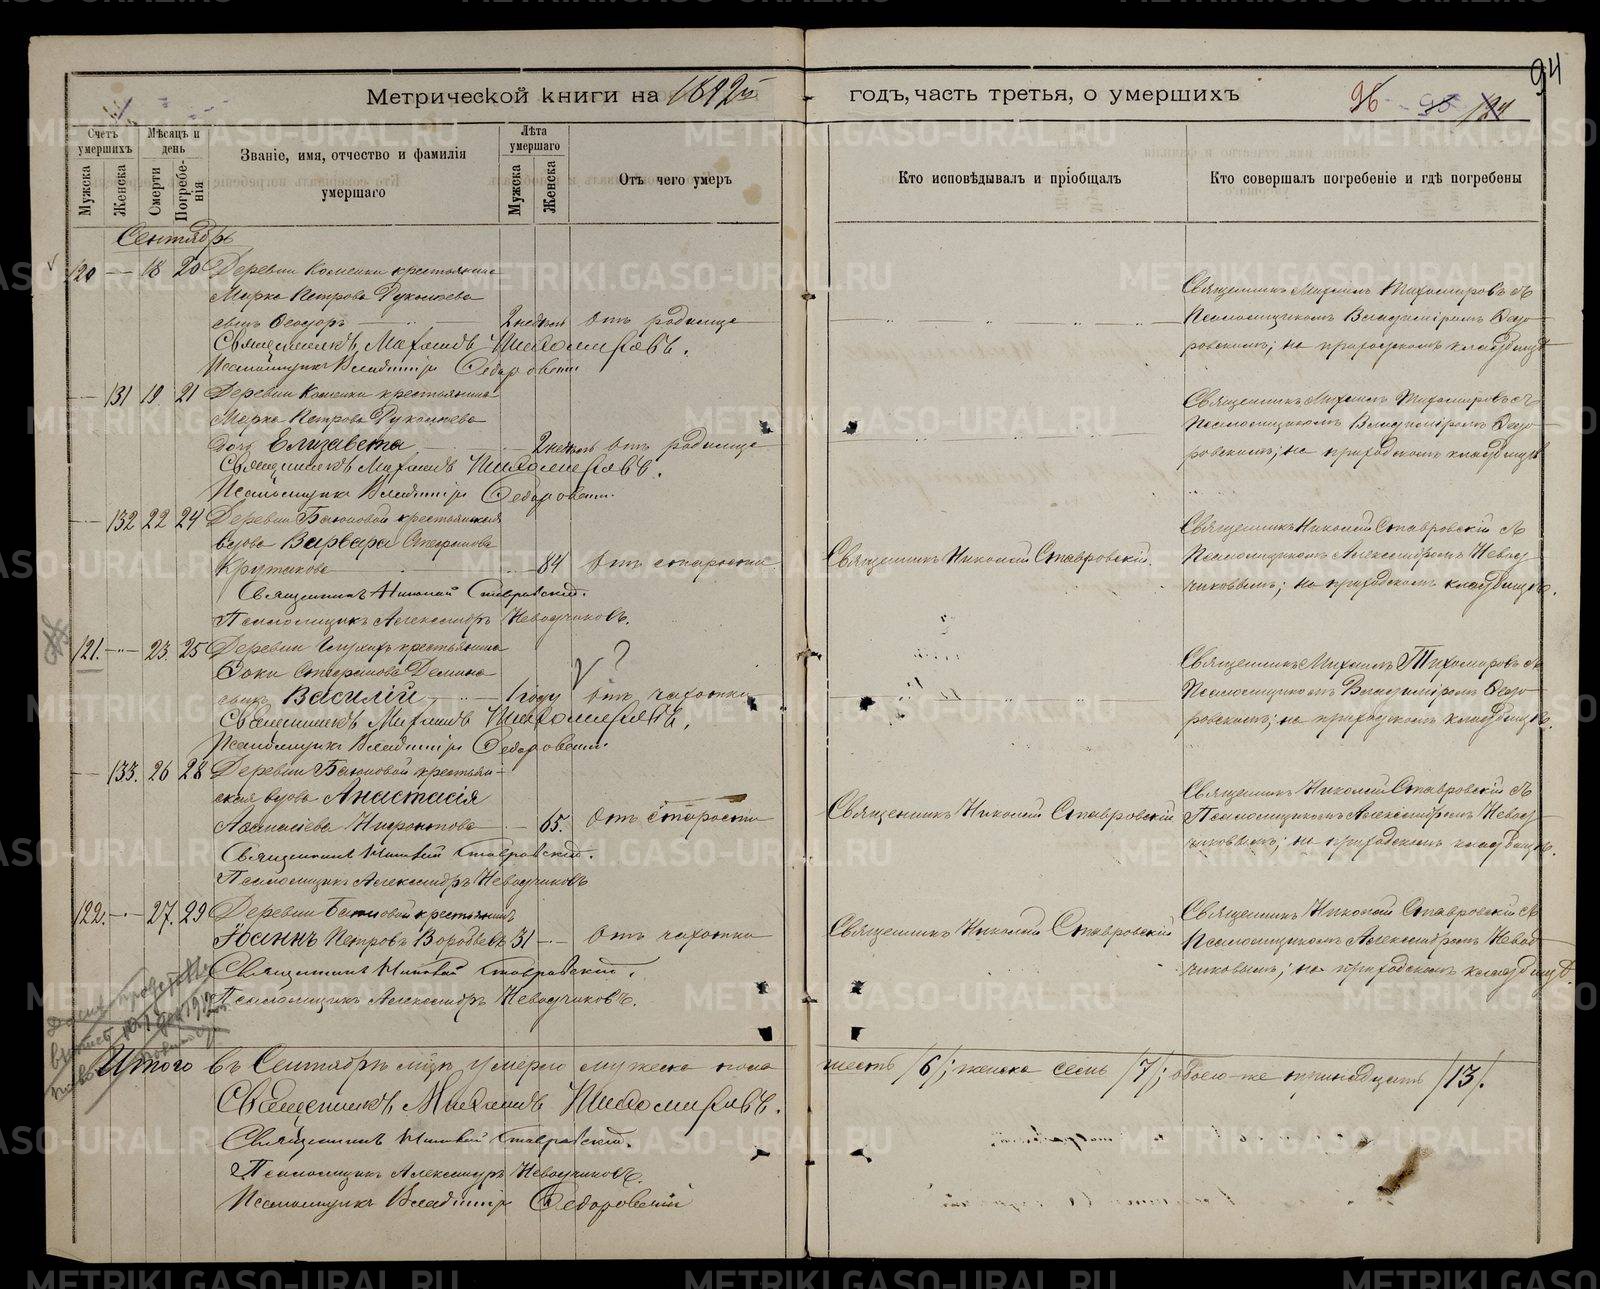 94
Метрической книги на 1892й годъ, часть третья, о умершихъ
96 95 124
Счетъ умершихъ
Мужска
Женска
Мѣсяцъ и день
Смерти
Погребенія
Званіе, имя, отчество и фамилія умершаго
Лѣта умершаго
Мужска
Женска
Отъ чего умеръ
Кто исповѣдывалъ и пріобщалъ
Кто совершалъ погребеніе и гдѣ погребены
Сентябрь
120 18 20 Деревни Каменки крестьянина
Марка Петрова
сынъ Ѳеодоръ 2 недѣль Отъ родимца
Священникъ Михаилъ Тихомировъ съ
Псаломщикомъ Владиміромъ Ѳедо-
ровскимъ; на приходскомъ кладбищѣ
Священникъ Михаилъ Тихомировъ.
Псаломщикъ Владиміръ Ѳедоровскій
131 19 21 Деревни Каменки крестьянина
Марка Петрова
дочь Елизавета 2 недѣль Отъ родимца
Священникъ Михаилъ Тихомировъ съ
Псаломщикомъ Владиміромъ Ѳедо-
ровскимъ; на приходскомъ кладбищѣ
Священникъ Михаилъ Тихомировъ.
Псаломщикъ Владиміръ Ѳедоровскій.
132 22 24 Деревни крестьянская
вдова Варвара Стефанова
84 Отъ старости
Священникъ Николай Ставровскій.
Священникъ Николай Ставровскій съ
Псаломщикомъ Александромъ
на приходскомъ кладбищѣ.
Священникъ Николай Ставровскій.
Псаломщикъ Александръ
121. 23. 25 Деревни крестьянина
Стефанова Демина
сынъ Василій 1 году Отъ чахотки
?
Священникъ Михаилъ Тихомировъ съ
Псаломщикомъ Владиміромъ Ѳедо-
ровскимъ; на приходскомъ кладбищѣ.
Священникъ Михаилъ Тихомировъ.
Псаломщикъ Владиміръ Ѳедоровскій.
133. 26 28 Деревни крестьян-
ская вдова Анастасія
Аѳанасіева 65. Отъ старости
Священникъ Николай Ставровскій
Священникъ Николай Ставровскій съ
Псаломщикомъ Александромъ
на приходскомъ кладбищѣ.
Священникъ Николай Ставровскій.
Псаломщикъ Александръ
122. 27. 29 Деревни крестьянинъ
Іоаннъ Петровъ Воробьевъ 31 Отъ чахотки
Священникъ Николай Ставровскій
Священникъ Николай Ставровскій съ
Псаломщикомъ Александромъ
на приходскомъ кладбищѣ.
Священникъ Николай Ставровскій.
Псаломщикъ Александръ
Итого въ Сентябрѣ м-цѣ умерло мужеска пола шесть /6/; женска семь /7/; обоего-же тринадцать /13/.
Священникъ Михаилъ Тихомировъ.
Священникъ Николай Ставровскій.
Псаломщикъ Александръ
Псаломщикъ Владиміръ Ѳедоровскій
METRIKI.GASO-URAL.RU